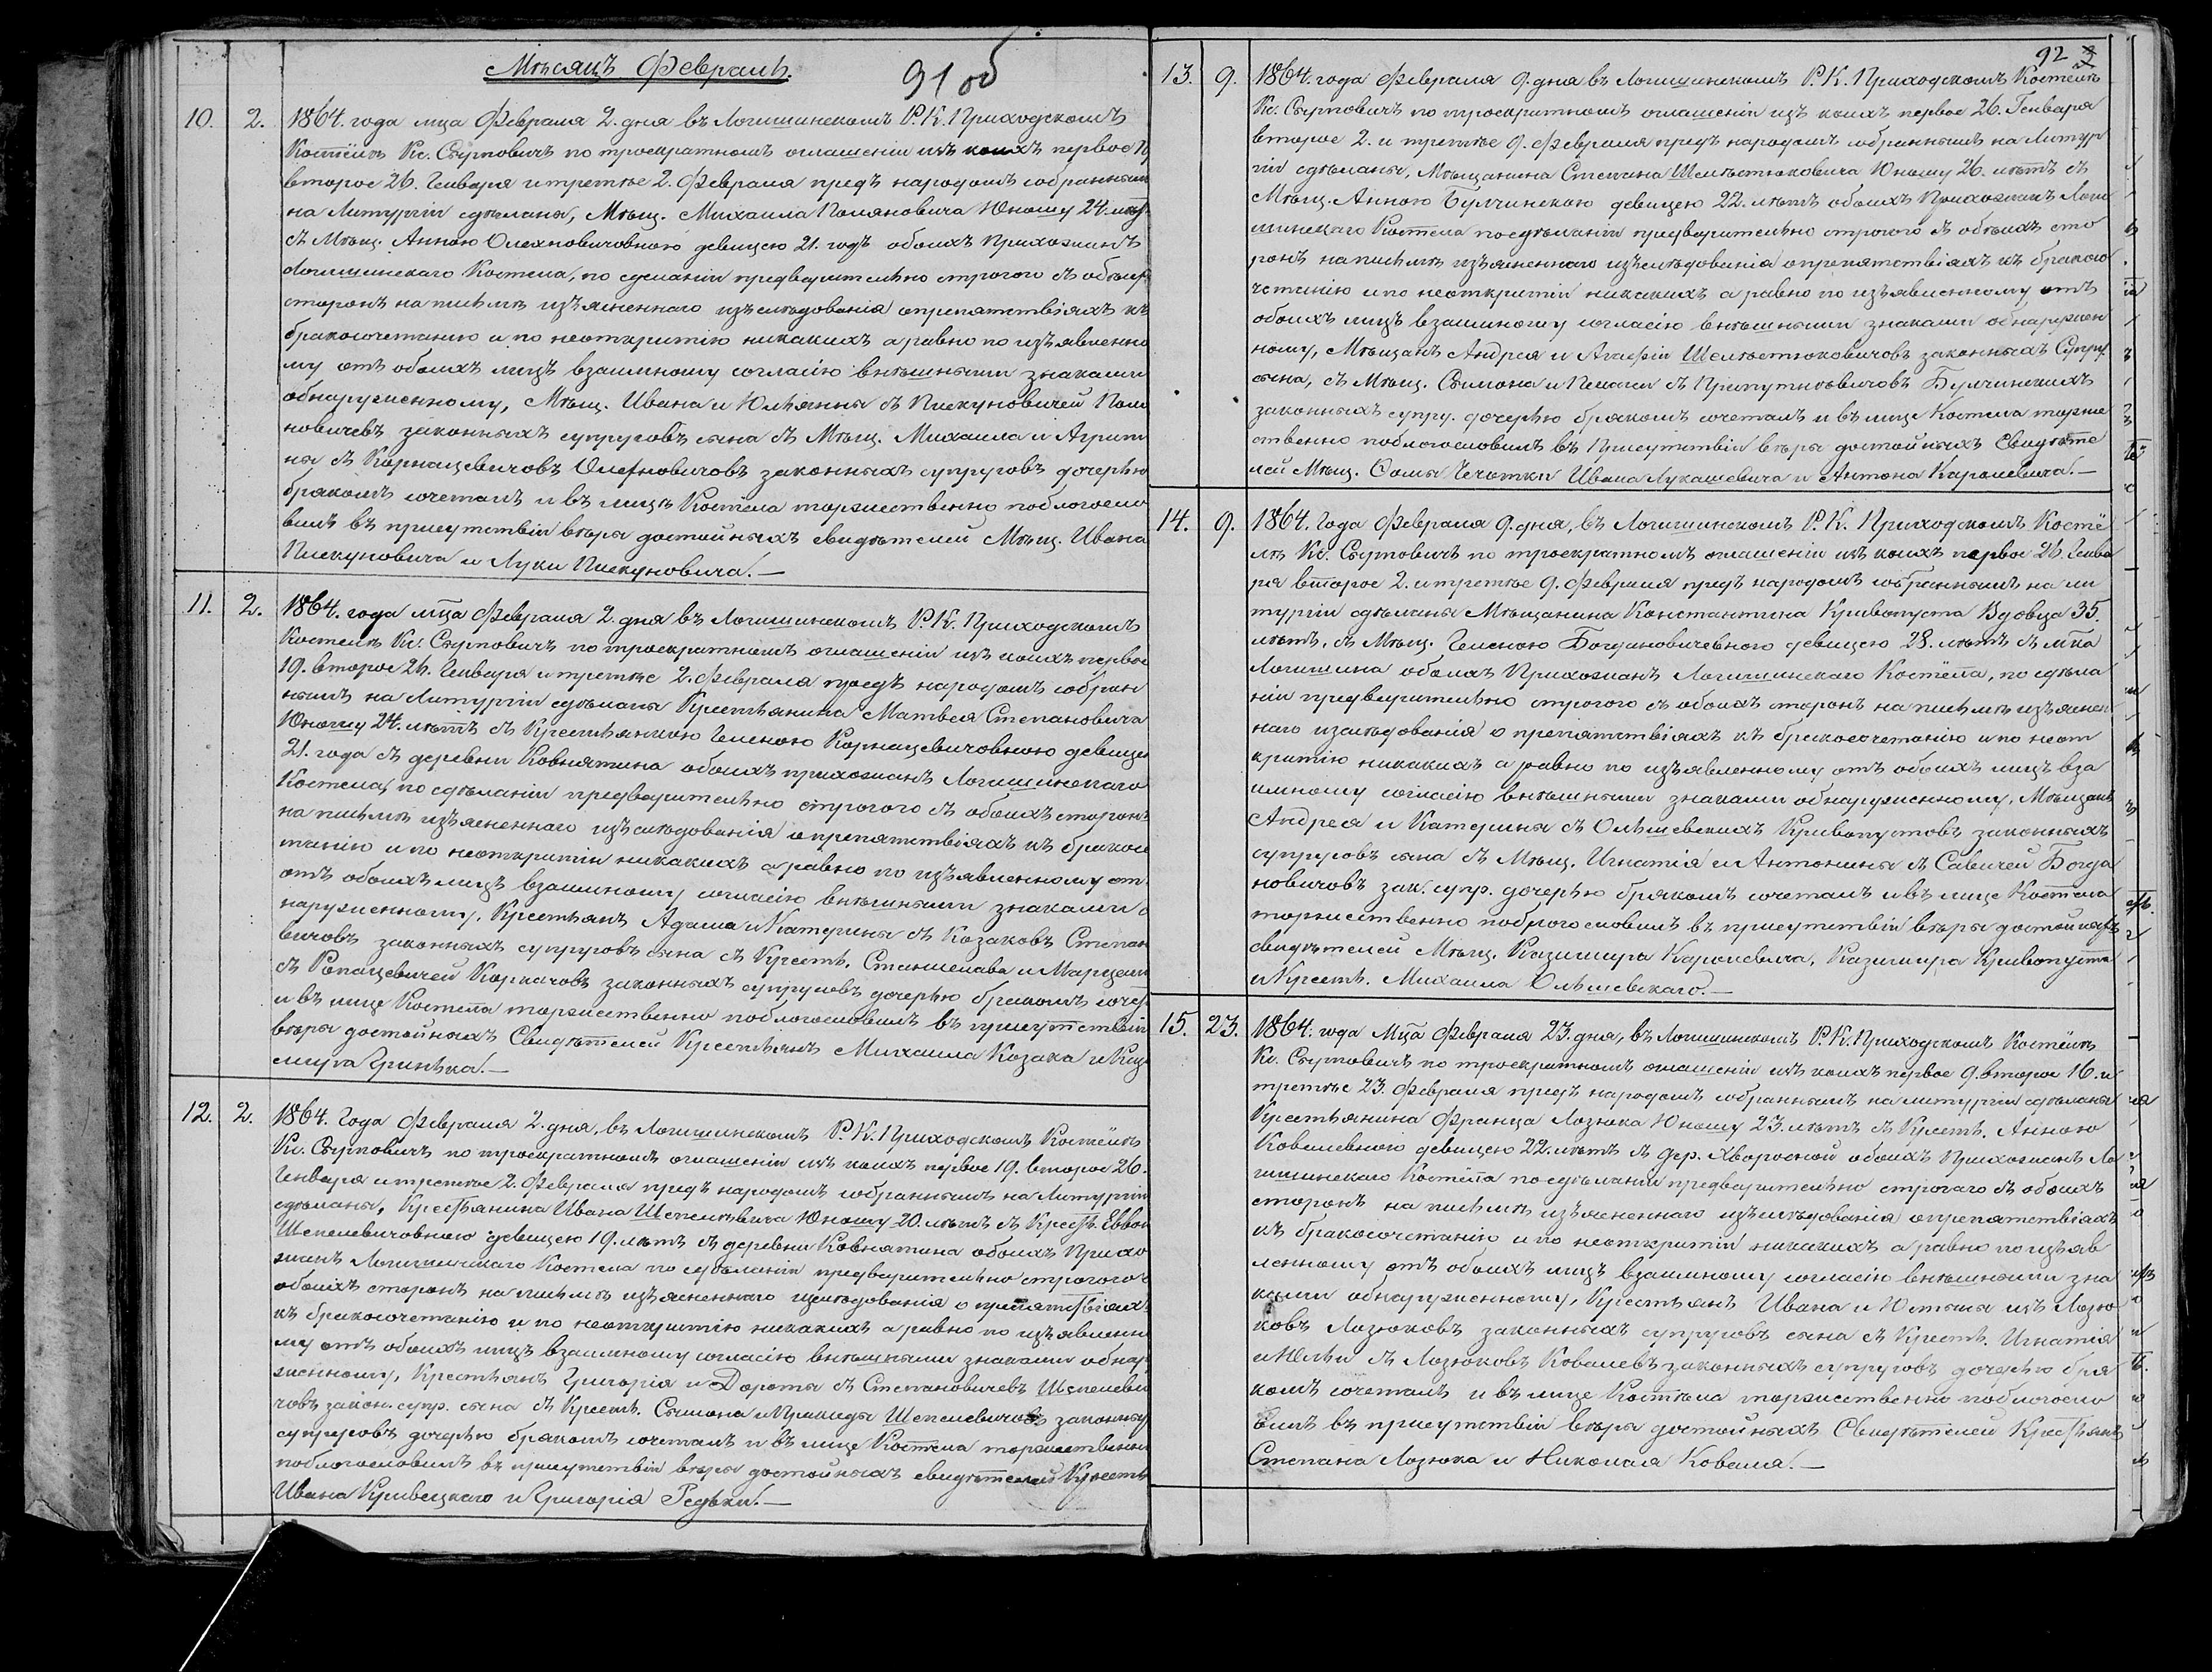 Мѣсяцъ Февраль.
91 об
10. 2. 1864. года мца Февраля 2. дня въ Логишинскомъ Р. К. Приходскомъ
Костёлѣ Кс. Сыртовичъ по троекратномъ оглашеніи изъ коихъ первое
второе 26. Генваря и третье 2. Февраля предъ народомъ собраннымъ
на Литургіи сдѣланы, Мѣщ. Михаила Поляновича Юношу 24. лѣт
съ Мѣщ. Анною Олехновичовною девицею 21. годъ обоихъ Прихожанъ
Логишинскаго Костела, по сделаніи предварительно строгого съ обоихъ
сторонъ на письмѣ изъясненнаго изъслѣдованія о препятствіяхъ къ
бракосочетанію и по неоткритію никакихъ а равно по изъявленно
му отъ обоихъ лицъ взаимному согласію внѣшными знаками
обнаруженному, Мѣщ. Ивана и Юльянны съ Пискуновичей Поля
новичевъ законныхъ супруговъ сына съ Мѣщ. Михаила и Агрипи
ны съ Карнацевичовъ Олехновичовъ законныхъ супруговъ дочерью
бракомъ сочеталъ и въ лицѣ Костела торжественно поблогосло
вилъ въ присутствіи вѣры достойныхъ свидѣтелей Мѣщ. Ивана
Пискуновича и Луки Пискуновича.—
11. 2. 1864. года мца Февраля 2. дня въ Логишинскомъ Р. К. Приходскомъ
Костелѣ Кс. Сыртовичъ по троекратномъ оглашеніи изъ коихъ первое
19. второе 26. Генваря и третье 2. Февраля предъ народомъ собран
нымъ на Литургіи сдѣланы Крестьянина Матвея Степановича
Юношу 24. лѣтъ съ Крестьянкою Геленою Корнацевичовною девицею
21. года съ деревни Ковнятина обоихъ прихожанъ Логишинскаго
Костела, по сдѣланіи предварительно строгого съ обоихъ сторонъ
на письмѣ изъясненнаго изъслѣдованія о препятствіяхъ къ бракосо
танію и по неоткритіи никакихъ а равно по изъявленному от
отъ обоихъ лицъ взаимному согласію внѣшными знаками о
наруженному, Крестьянъ Адама и Катерины съ Козаковъ Степан
вичовъ законныхъ супруговъ сына съ Кресть. Станислава и Марцели
съ Ропацевичей Корначовъ законныхъ супруговъ дочерью бракомъ соче
и въ лице Костела торжественно поблогословилъ въ присутствіи
вѣры достойныхъ Свидѣтелей Крестьянъ Михаила Козака и Кази
мира Гринька.—
12. 2. 1864. Года Февраля 2. дня, въ Логишинскомъ Р. К. Приходскомъ Костёлѣ
Кс. Сыртовичъ по троекратномъ оглашеніи изъ коихъ первое 19. второе 26.
Генваря и третье 2. Февраля предъ народомъ собраннымъ на Литургіи
сдѣланы, Крестьянина Ивана Шепелевича Юношу 20. лѣтъ съ Кресть.
Шепелевичовною девицею 19. лѣтъ съ деревни Ковнятина обоихъ Прихо
жанъ Логишинскаго Костела по сдѣланіи предварительно строгого с
обоихъ сторонъ на письмѣ изъясненнаго изслѣдованія о препятствіяхъ
къ бракосочетанію и по неоткритію никакихъ а равно по изъявленно
му отъ обоихъ лицъ взаимному согласію внѣшными знаками обнару
женному, Крестьянъ Григорія и Дороты съ Степановичевъ Шепелеви
човъ закон. супр. сына съ Кресть. Сымона и Шепелевичовъ законныхъ
супруговъ дочерью бракомъ сочеталъ и въ лице Костела торжественно
поблогословилъ въ присутствіи вѣры достойныхъ свидѣтелей Кресть
Ивана Кривецкаго и Григорія Редьки.—
92
13. 9. 1864. года Февраля 9. дня въ Логишинскомъ Р. К. Приходскомъ Костелѣ
Кс. Сыртовичъ по троекратномъ оглашеніи изъ коихъ первое 26. Генваря
второе 2. и третье 9. Февраля предъ народомъ собраннымъ на Литур
гіи сдѣланы, Мѣщанина Степана Шелѣстюковича Юношу 26. лѣтъ съ
Мѣщ. Анною Булчинскою девицею 22. лѣтъ обоихъ Прихожанъ Логи
шинскаго Костела по сдѣланіи предварительно строгого съ обоихъ сто
ронъ на письмѣ изъясненнаго изъслѣдованія о препятствіяхъ къ бракосо
четанію и по неоткритіи никакихъ а равно по изъявленному отъ
обоихъ лицъ взаимному согласію внѣшными знаками обнаружен
ному, Мѣщанъ Андрея и Агафіи Шелѣстюковичовъ законныхъ Супру.
сына, съ Мѣщ. Сымона и Пелагіи съ Припутневичовъ Булчинскихъ
законныхъ супру. дочерью бракомъ сочеталъ и въ лице Костела торже
ственно поблогословилъ въ Присутствіи вѣры достойныхъ Свидѣте
лей Мѣщ. Сомы Чечотки Ивана Лукашевича и Антона Каролевича.—
14. 9. 1864. Года Февраля 9. дня, въ Логишинскомъ Р. К. Приходскомъ Костё
лѣ Кс. Сыртовичъ по троекратномъ оглашеніи изъ коихъ первое 26. Генва
ря второе 2. и третье 9. Февраля предъ народомъ собраннымъ на ли
тургіи сдѣланы Мѣщанина Константина Кривопуста Вдовца 35.
лѣтъ, съ Мѣщ. Геленою Богдановичевною девицею 28. лѣтъ съ мка
Логишина обоихъ Прихожанъ Логишинскаго Костёла, по сдѣла
ніи предварительно строгого съ обоихъ сторонъ на письмѣ изъяснен
наго изслѣдованія о препятствіяхъ къ бракосочетанію и по неот
критію никакихъ а равно по изъявленному отъ обоихъ лицъ вза
имному согласію внѣшными знаками обнаруженному, Мѣщанъ
Андрея и Катерины съ Ольшевскихъ Кривопустовъ законныхъ
супруговъ сына съ Мѣщ. Игнатія и Антонины съ Савичей Богда
новичовъ зак. супр. дочерью бракомъ сочеталъ и въ лице Костела
торжественно поблогословилъ въ присутствіи вѣры достойныхъ
свидѣтелей Мѣщ. Казимира Каролевича, Казимира Кривопуста
и Кресть. Михаила Ольшевскаго.—
15. 23. 1864. года Мца Февраля 23. дня, въ Логишинскомъ Р. К. Приходскомъ Костёлѣ
Кс. Сыртовичъ по троекратномъ оглашеніи изъ коихъ первое 9. второе 16. и
третье 23. Февраля предъ народомъ собраннымъ на литургіи сдѣланы
Крестьянина Франца Лозюка Юношу 23. лѣтъ съ Кресть. Анною
Ковалевною девицею 22. лѣтъ съ дер. Хворосной обоихъ Прихожанъ Ло
гишинскаго Костёла по сдѣланіи предварительно строгаго съ обоихъ
сторонъ на письмѣ изъясненнаго изъслѣдованія о препятствіяхъ
къ бракосочетанію и по неоткритіи никакихъ а равно по изъяв
ленному отъ обоихъ лицъ взаимному согласію внѣшными зна
ками обнаруженному, Крестьянъ Ивана и Юстыны изъ Лозю
ковъ Лозюковъ законныхъ супруговъ сына съ Кресть. Игнатія
и Юліи съ Лозюковъ Ковалевъ законныхъ супруговъ дочерью бра
комъ сочеталъ и въ лице Костѣла торжественно поблогосло
вилъ въ присутствіи вѣры достойныхъ Свидѣтелей Крестьянъ
Степана Лозюка и Николая Коваля.—